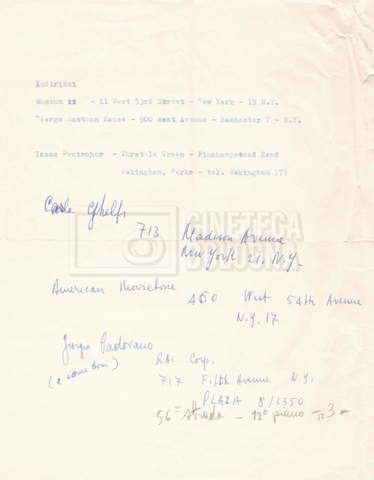 Indirizzi
Museum xx - 11 West 53rd Street - New York - 19 N.Y.
George Eastman House - 900 East Avenue - Rochester 7 - N.Y.
Isaac Deutscher - Throttle Green - Finchampstead Road
Wokingham, Berks - tel. Wokingham 375
Carla Ghelfi
713 Madison Avenue
New York 21. N.Y.
CINETECA
BOLOGNA
American Movietone
450 West 54th Avenue
N.Y. 17
Giorgio Padovano
(a nome Boni)
RAI Corp.
717 Fifth Avenue N.Y.
PLAZA 8/2350
56ª strada - 12º piano